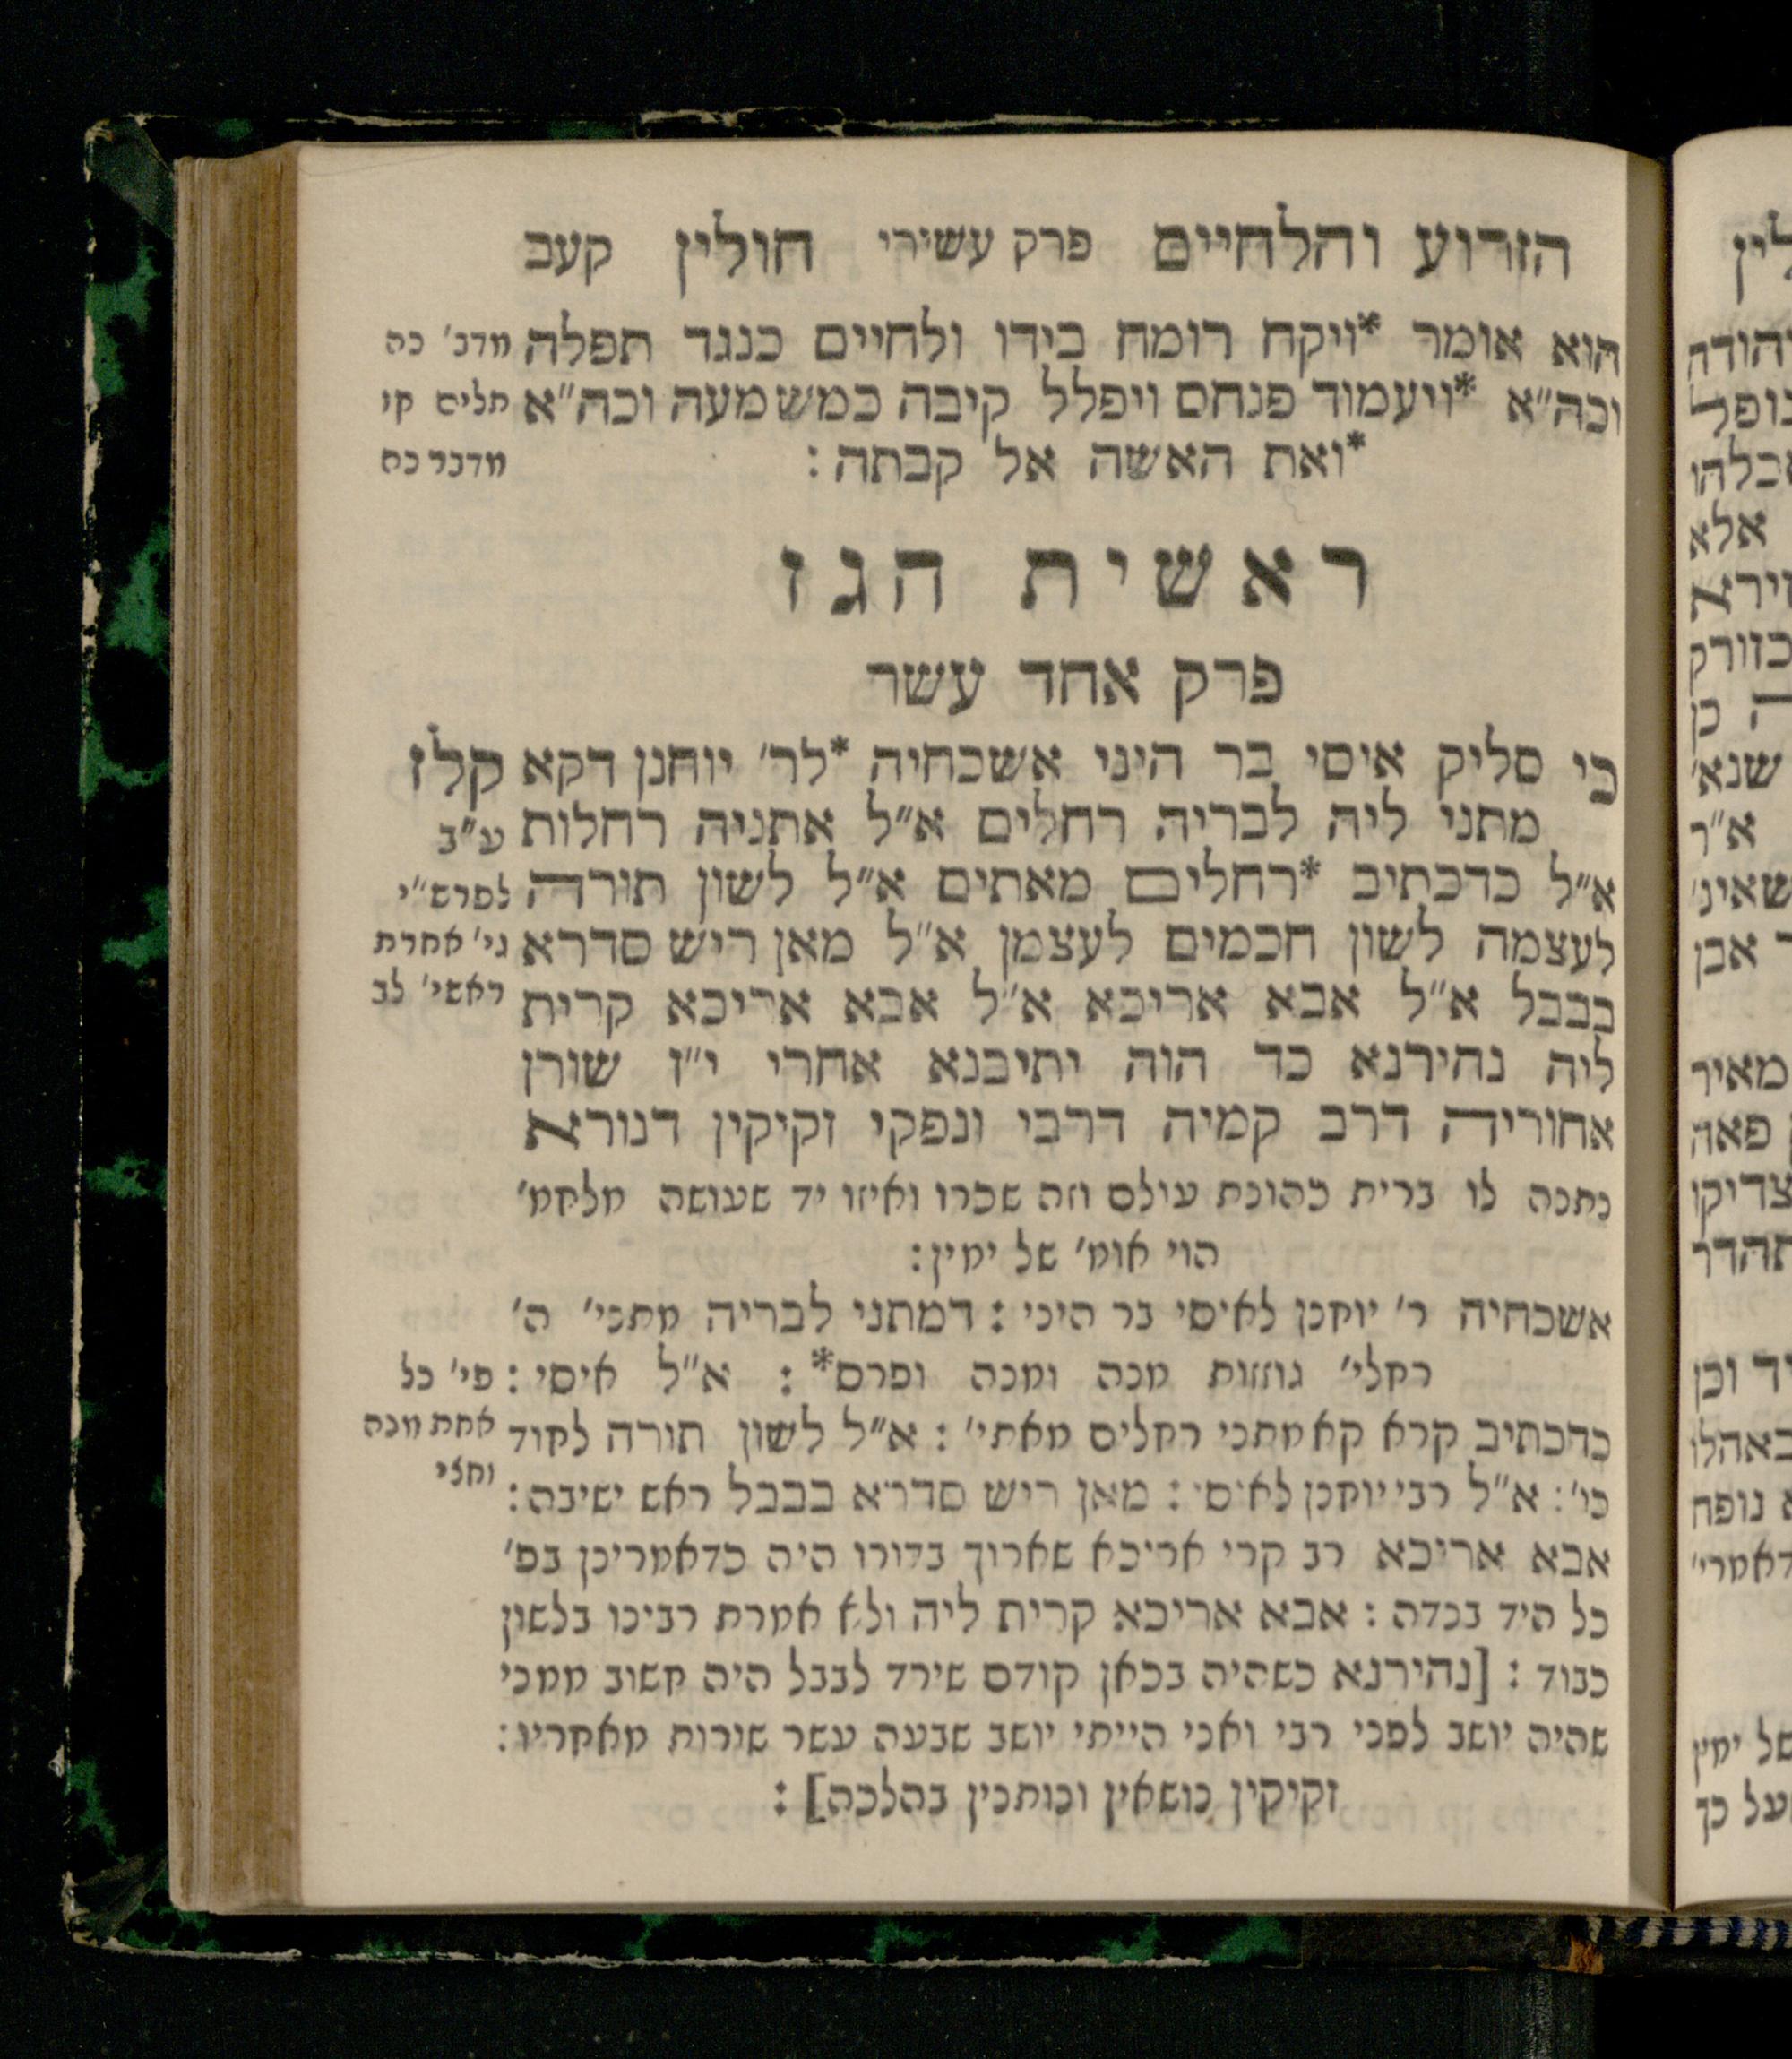 הזרוע והלחיים פרק עשירי חולין קעב
הוא אומר *ויקח רומח בידו ולחיים כנגד תפלה מדב׳ כה
וכה״א *ויעמוד פנחס ויפלל קיבה כמשמעה וכה״א תלים קו
*ואת האשה אל קבתה : מדבר כה
ראשית הגז
פרק אחד עשר
כי סליק איסי בר היני אשכחיה *לר׳ יוחנן דקא קלז
מתני ליה לבריה רחלים א״ל אתניה רחלות ע״ב
א״ל כדכתיב *רחלים מאתים א״ל לשון תורה לפרש״י
לעצמה לשון חכמים לעצמן א״ל מאן ריש סדרא גי׳ אחרת
בבבל א״ל אבא אריכא א״ל אבא אריכא קרית ראשי׳ לב
ליה נהירנא כד הוה יתיבנא אחרי י״ז שורן
אחוריה דרב קמיה דרבי ונפקי זקיקין דנורא
נתנה לו ברית כהונת עולם וזה שכרו ואיזו יד שעושה מלחמ׳
הוי אומ׳ של ימין :
אשכחיה ר׳ יוחנן לאיסי בר היני : דמתני לבריה מתני׳ ה׳
רחלי׳ גוזזות מנה ומנה ופרס* : א״ל איסי : פי׳ כל
כדכתיב קרא קאמתני רחלים מאתי׳ : א״ל לשון תורה לחוד אחת מנה
כו׳ : א״ל רבי יוחנן לאיסי : מאן ריש סדרא בבבל ראש ישיבה : וחצי
אבא אריכא רב קרי אריכא שארוך בדורו היה כדאמרינן בפ׳
כל היד בנדה : אבא אריכא קרית ליה ולא אמרת רבינו בלשון
כבוד : [נהירנא כשהיה בכאן קודם שירד לבבל היה חשוב ממני
שהיה יושב לפני רבי ואני הייתי יושב שבעה עשר שורות מאחריו :
זקיקין נושאין ונותנין בהלכה] :